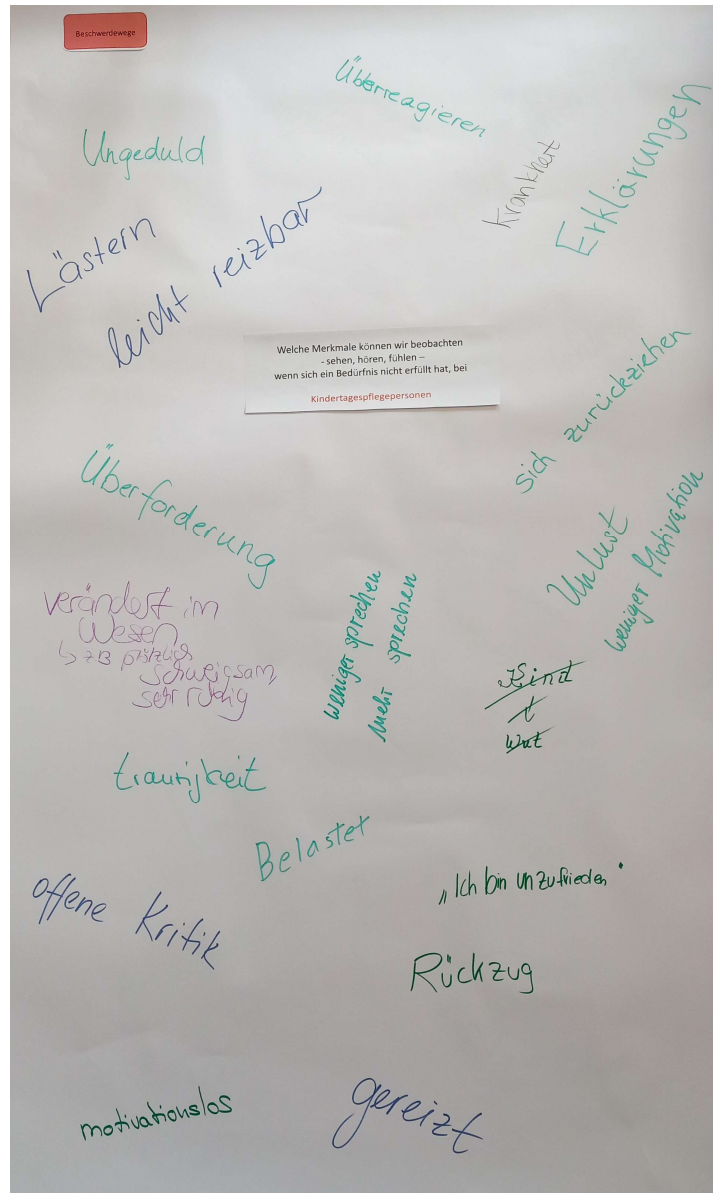 Beschwerdewege
Überreagieren
Ungeduld
Krankheit
Erklärungen
Lästern
leicht reizbar
Welche Merkmale können wir beobachten
- sehen, hören, fühlen –
wenn sich ein Bedürfnis nicht erfüllt hat, bei
Kindertagespflegepersonen
sich zurückziehen
Überforderung
Unlust
weniger Motivation
verändert im
Wesen
↳ zB plötzlich
schweigsam,
sehr ruhig
weniger sprechen
mehr sprechen
Kind
Wut
traurigkeit
Belastet
„Ich bin unzufrieden"
offene Kritik
Rückzug
motivationslos
gereizt